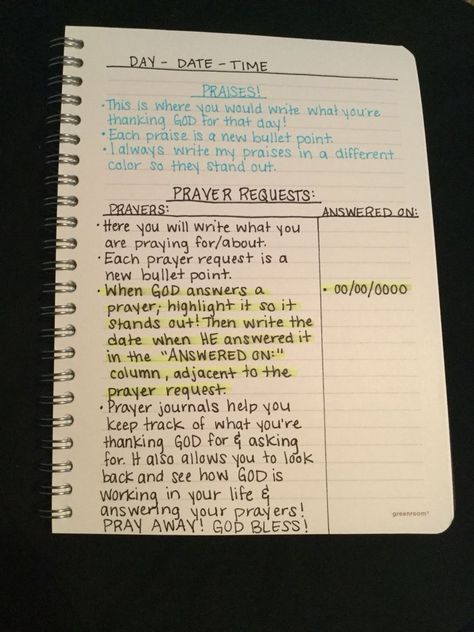 DAY - DATE - TIME
PRAISES!
• This is where you would write what you're
thanking GOD for that day!
• Each praise is a new bullet point.
• I always write my praises in a different
color so they stand out.
PRAYER REQUESTS:
PRAYERS: ANSWERED ON:
• Here you will write what you
are praying for/about.
• Each prayer request is a
new bullet point.
• When GOD answers a • 00/00/0000
prayer, highlight it so it
stands out! Then write the
date when HE answered it
in the "ANSWERED ON:"
column, adjacent to the
prayer request.
• Prayer journals help you
keep track of what you're
thanking GOD for & asking
for. It also allows you to look
back and see how GOD is
working in your life &
answering your prayers!
PRAY AWAY! GOD BLESS!
greenroom